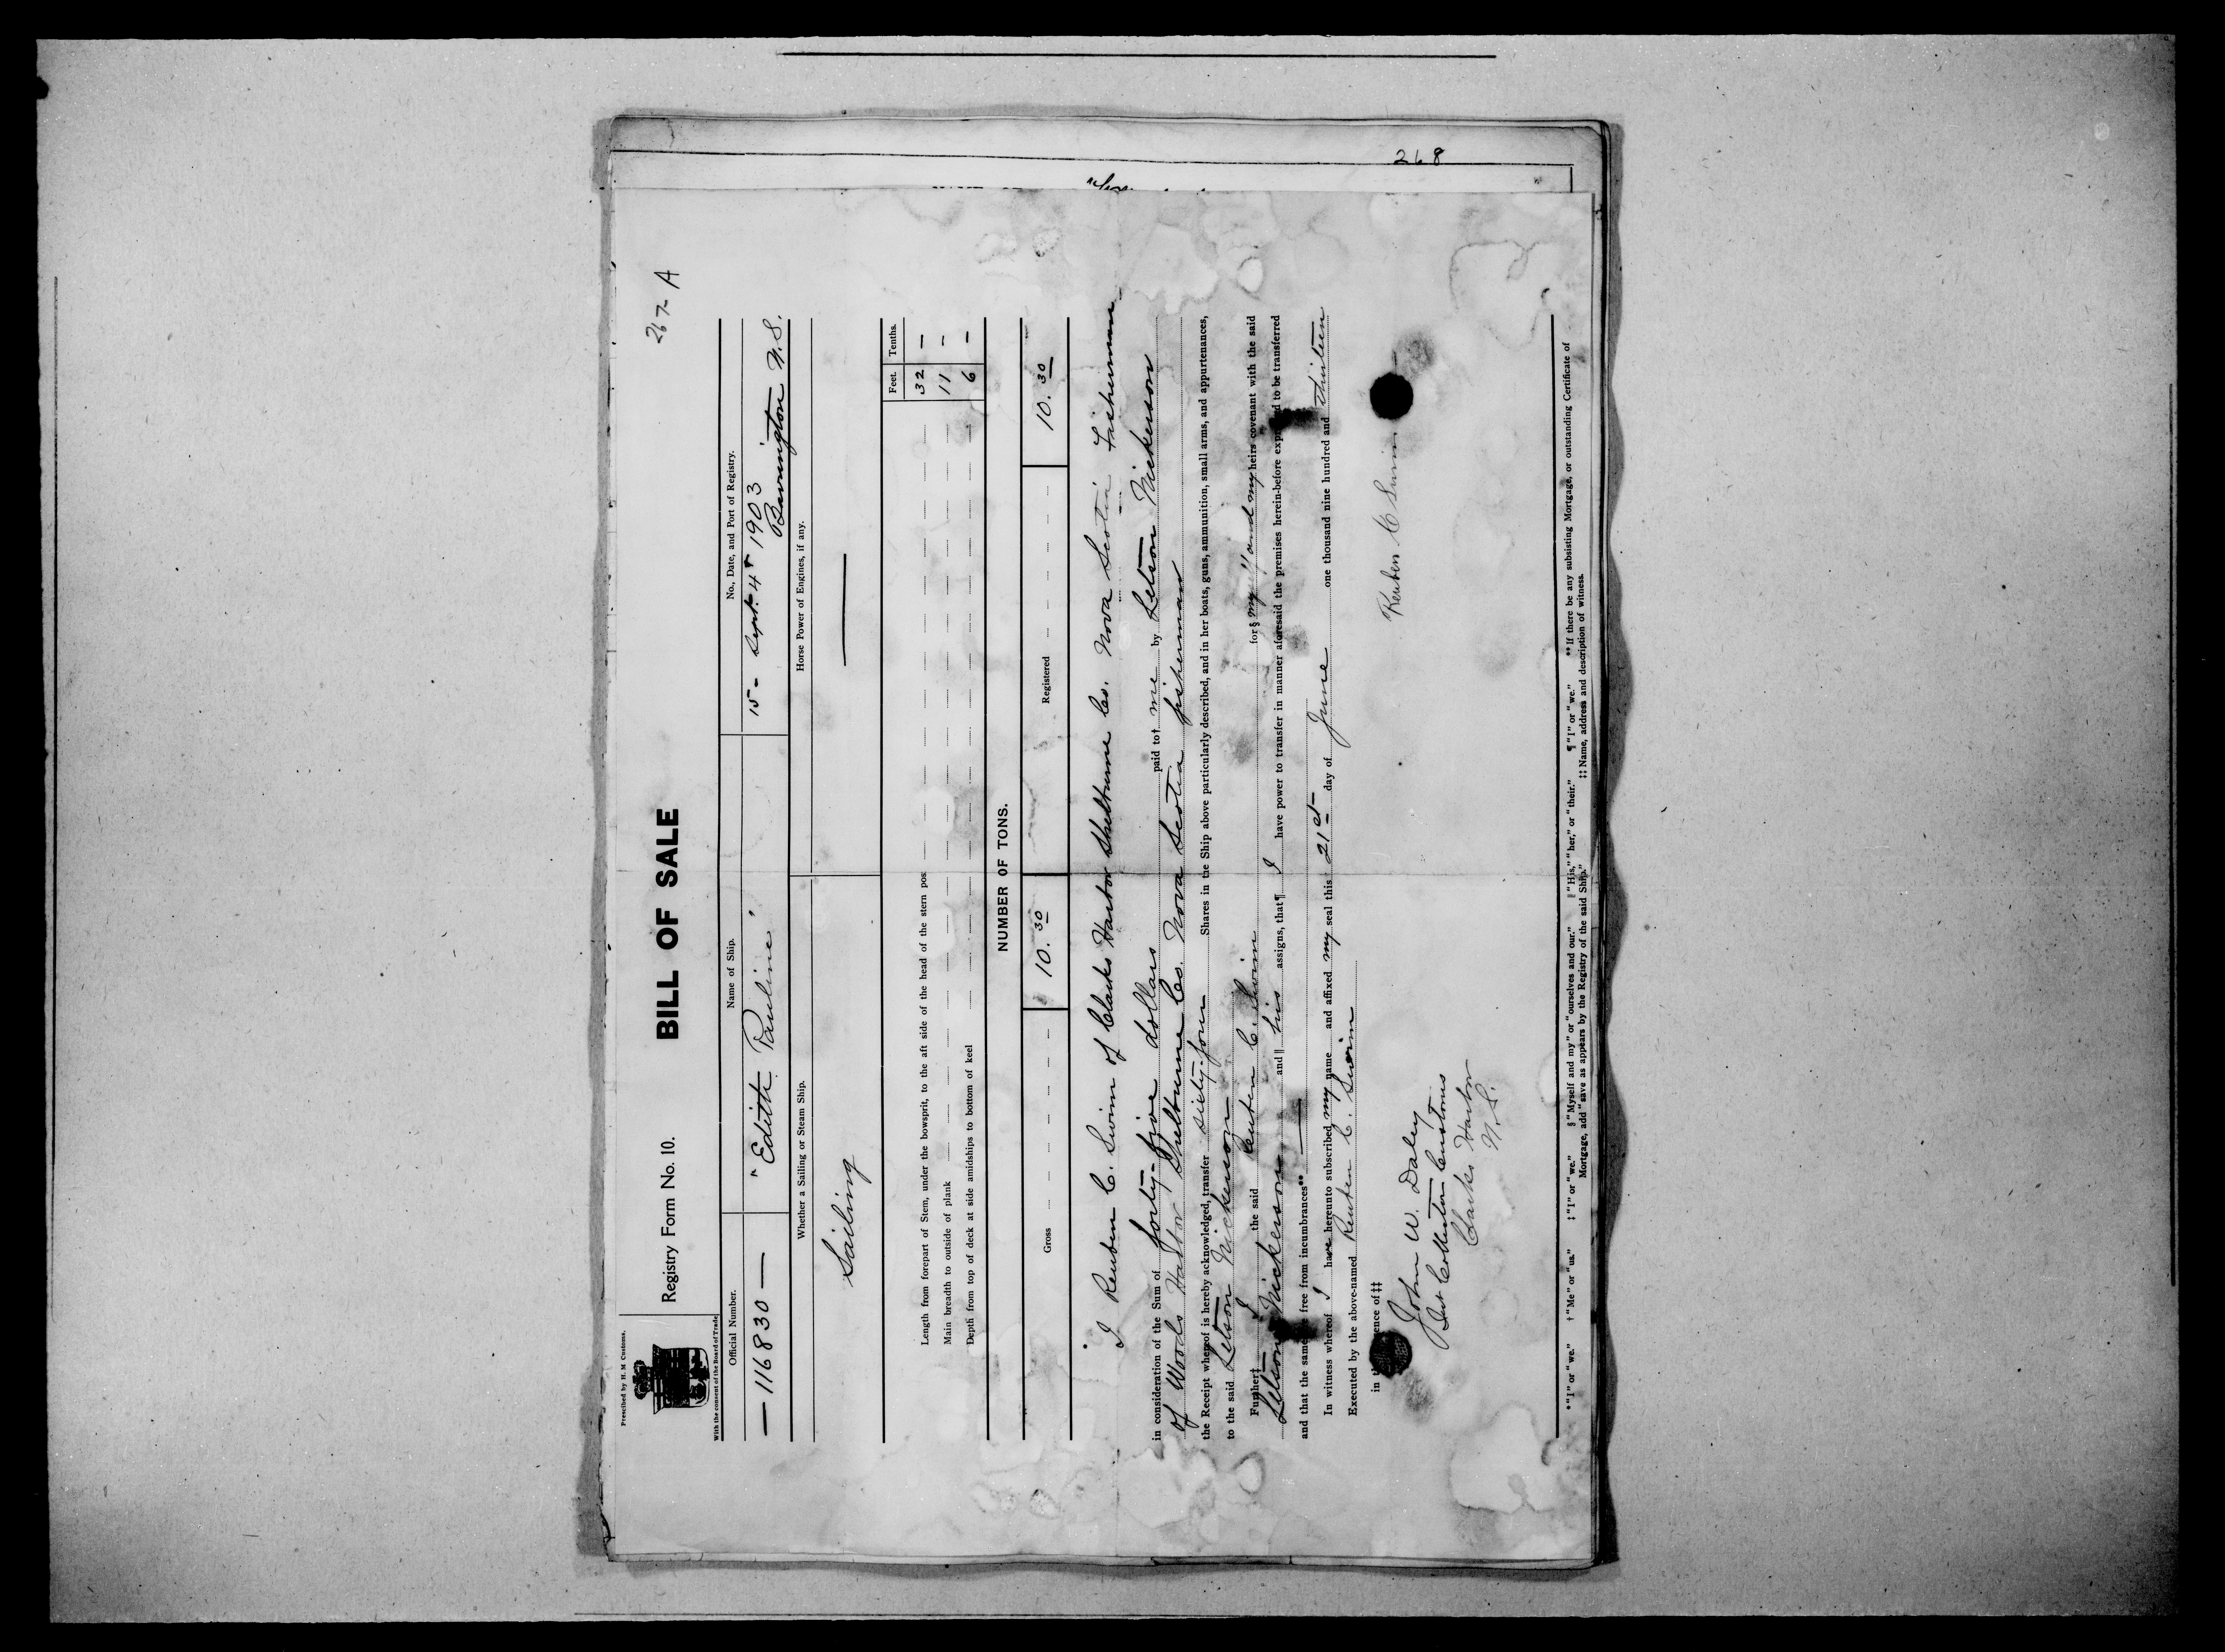 268
267 A
Prescribed by H. M. Customs.
With the consent of the Board of Trade
Registry Form No. 10. BILL OF SALE
Official Number. Name of Ship. No., Date, and Port of Registry.
— 116830 — "Edith Pauline" 15 - Sept. 4th 1903
Barrington N.S.
Whether a Sailing or Steam Ship. Horse Power of Engines, if any.
Sailing —
Feet. Tenths.
Length from forepart of Stem, under the bowsprit, to the aft side of the head of the stern pos 32 —
Main breadth to outside of plank 11 —
Depth from top of deck at side amidships to bottom of keel 6 —
NUMBER OF TONS.
Gross 10.30 Registered 10.30
I Reuben C. Swim of Clarks Harbor Shelburne Co. Nova Scotia Fisherman
in consideration of the Sum of forty-five dollars paid to† me by Letson Nickerson
of Woods Harbor Shelburne Co. Nova Scotia fisherman
the Receipt whereof is hereby acknowledged, transfer sixty-four Shares in the Ship above particularly described, and in her boats, guns, ammunition, small arms, and appurtenances,
to the said Letson Nickerson
Further‡ I the said Reuben C. Swim for§ myself and my heirs covenant with the said
Letson Nickerson and‖ his assigns, that¶ I have power to transfer in manner aforesaid the premises herein-before expressed to be transferred
and that the same free from incumbrances**
In witness whereof I have hereunto subscribed my name and affixed my seal this 21st day of June one thousand nine hundred and thirteen
Executed by the above-named Reuben C. Swim
in the presence of‡‡ Reuben C Swim
John W. Daley
Sub Collector Customs
Clarks Harbor
N.S.
* "I" or "we." † "Me" or "us." ‡ "I" or "we." § "Myself and my" or "ourselves and our." ‖ "His," "her," or "their." ¶ "I" or "we." ** If there be any subsisting Mortgage, or outstanding Certificate of
Mortgage, add "save as appears by the Registry of the said Ship." ‡‡ Name, address and description of witness.